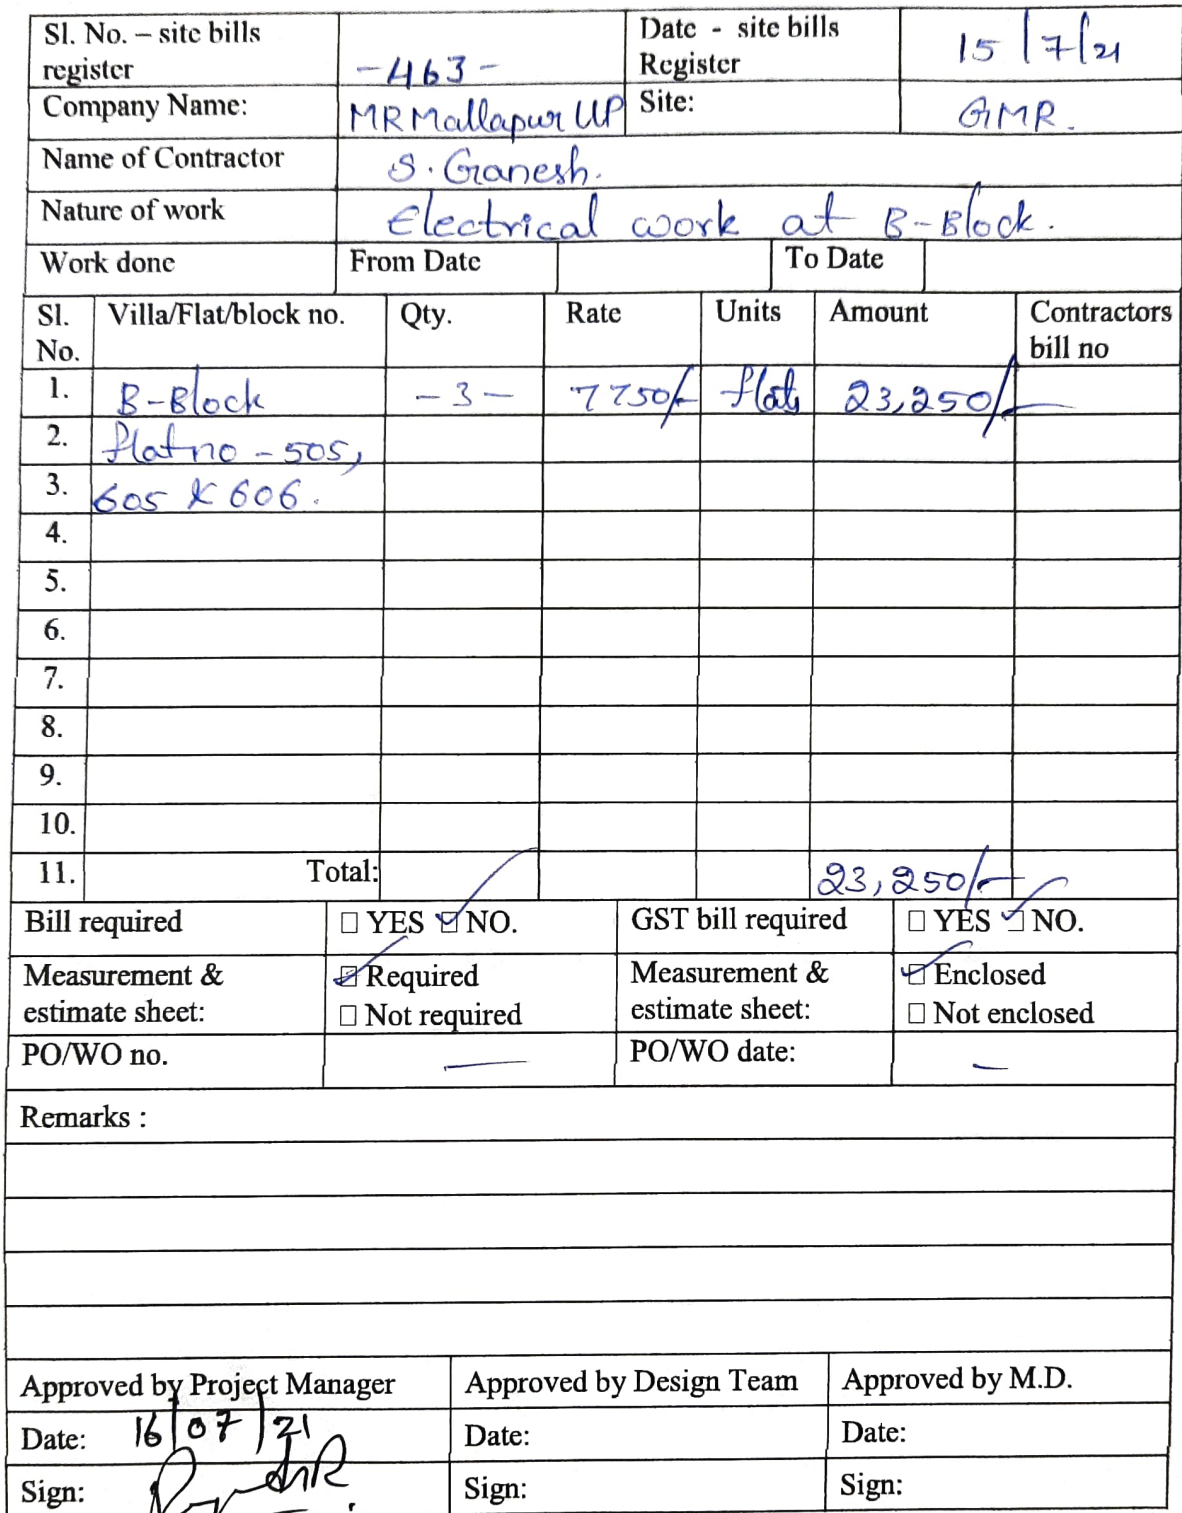 Sl. No. – site bills register -463- Date - site bills Register 15/7/21
Company Name: MR Mallapur UP Site: GMR.
Name of Contractor S. Ganesh.
Nature of work Electrical work at B-Block.
Work done From Date To Date
Sl. No. Villa/Flat/block no. Qty. Rate Units Amount Contractors bill no
1. B-Block -3- 7750/- flats 23,250/-
2. flat no - 505,
3. 605 & 606.
4.
5.
6.
7.
8.
9.
10.
11. Total: 23,250/-
Bill required ☐ YES ☑ NO. GST bill required ☐ YES ☑ NO.
Measurement & estimate sheet: ☑ Required ☐ Not required Measurement & estimate sheet: ☑ Enclosed ☐ Not enclosed
PO/WO no. — PO/WO date: —
Remarks :
Approved by Project Manager Approved by Design Team Approved by M.D.
Date: 16/07/21 Date: Date:
Sign: Sign: Sign: